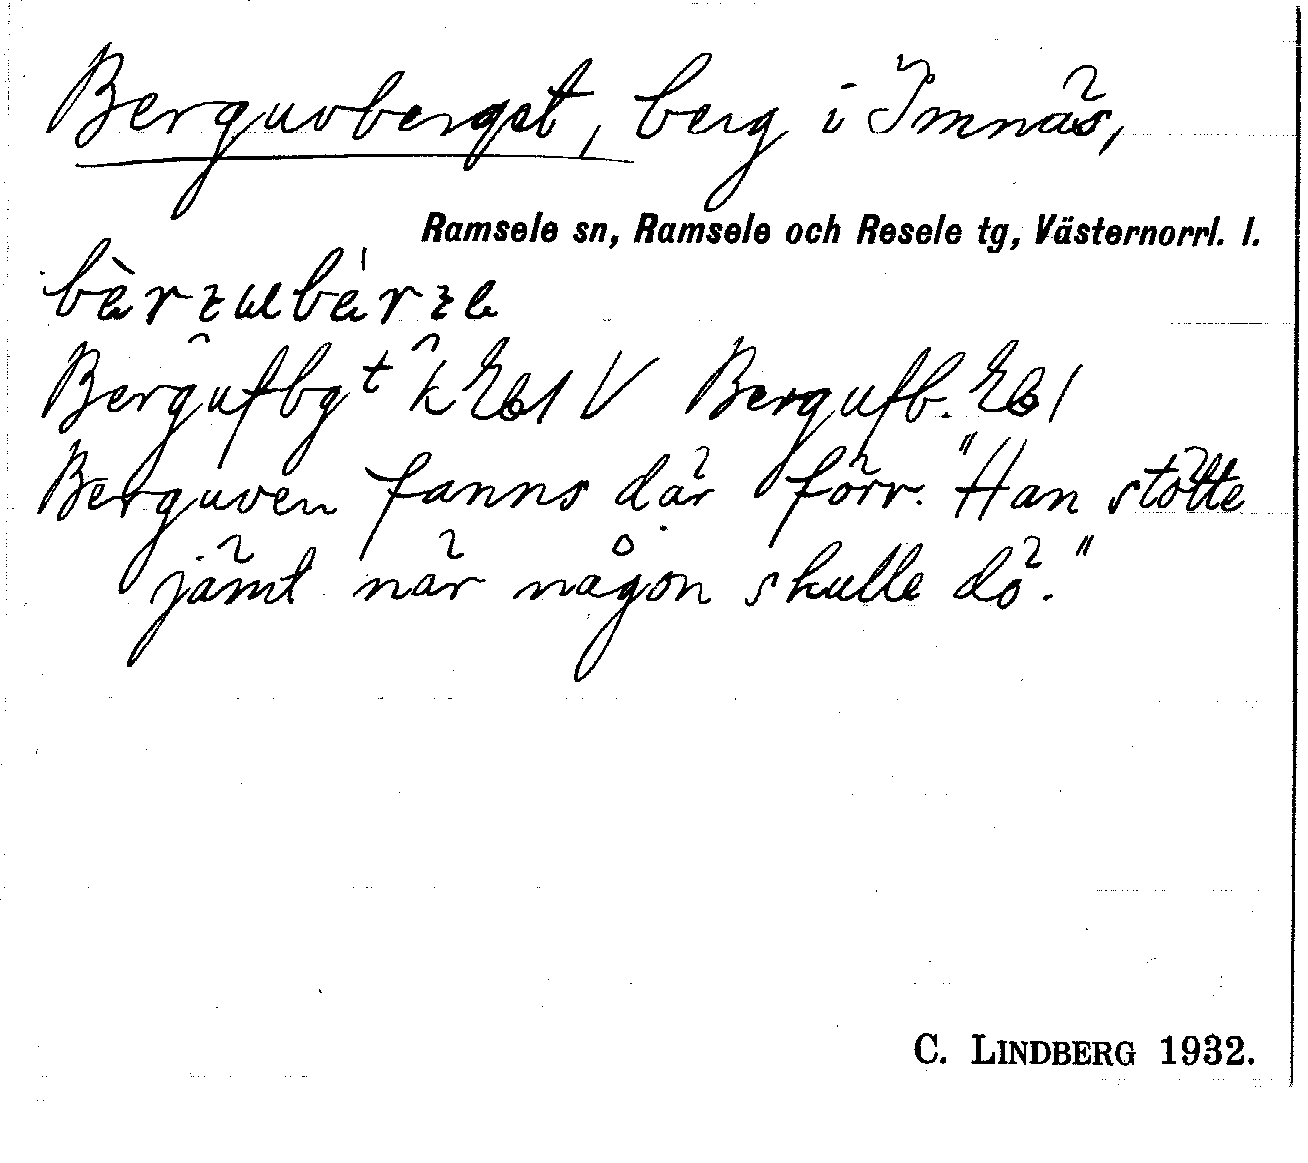 Berguvberget, berg i Imnäs,
Ramsele sn, Ramsele och Resele tg, Västernorrl. l.
Bergufbgt k Eb1 V Bergufb. Eb1
Berguven fanns där förr. "Han stötte
jämt när någon skulle dö."
C. LINDBERG 1932.